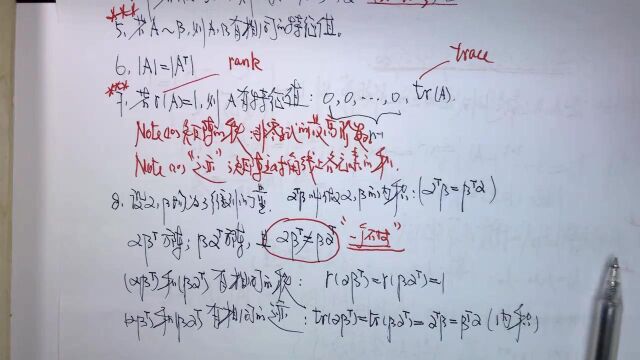 5. 若A~B, 则A,B有相同的特征值.
6. |A|=|Aᵀ|
rank
trace
7. 若r(A)=1, 则A有特征值: 0, 0, ..., 0, tr(A).
n-1
Note(1) 矩阵的秩: 非零子式的最高阶数
Note(2) "迹": 矩阵主对角线上各元素的和.
8. 设α, β均为3维列向量. αᵀβ叫做α, β的内积: (αᵀβ=βᵀα)
αβᵀ方阵; βαᵀ方阵, 且 αβᵀ≠βαᵀ "一般"
(αβᵀ)和(βαᵀ)有相同的秩: r(αβᵀ)=r(βαᵀ)=1
(αβᵀ)和(βαᵀ)有相同的迹: tr(αβᵀ)=tr(βαᵀ)=αᵀβ=βᵀα (内积)